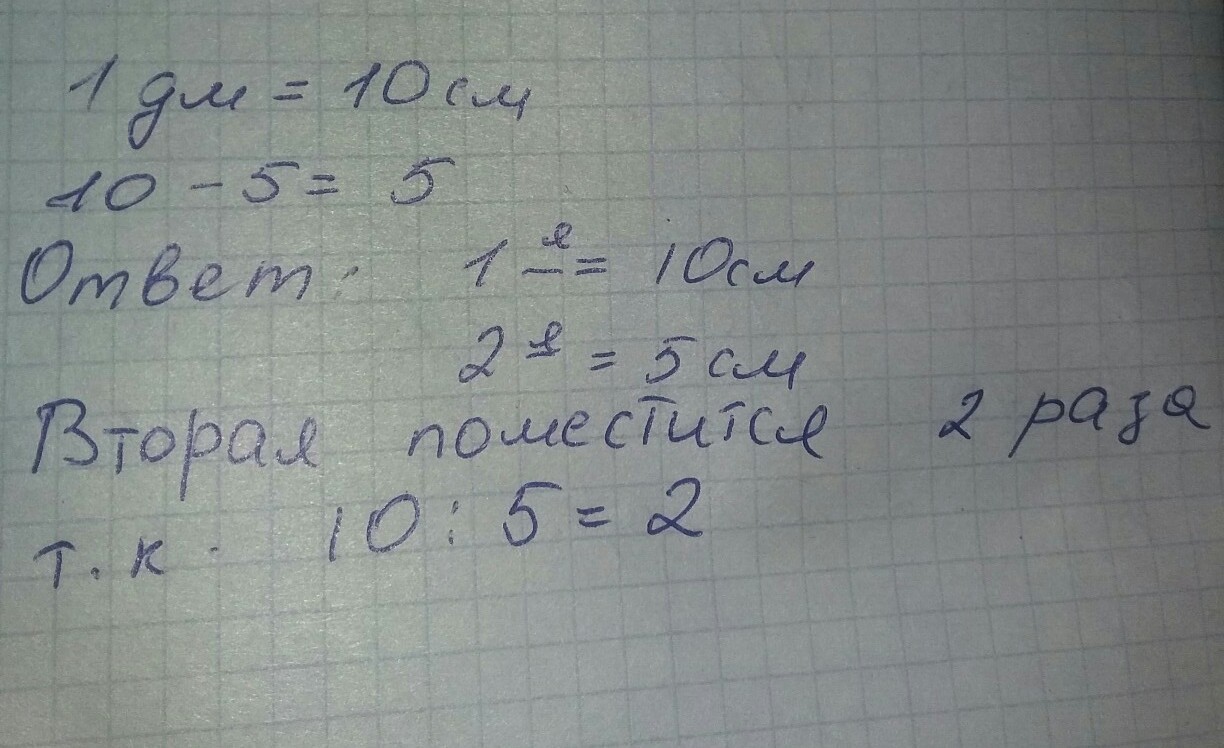 1 дм = 10 см
10 - 5 = 5
Ответ: 1 я = 10 см
2 я = 5 см
Вторая поместится 2 раза
т.к. 10 : 5 = 2